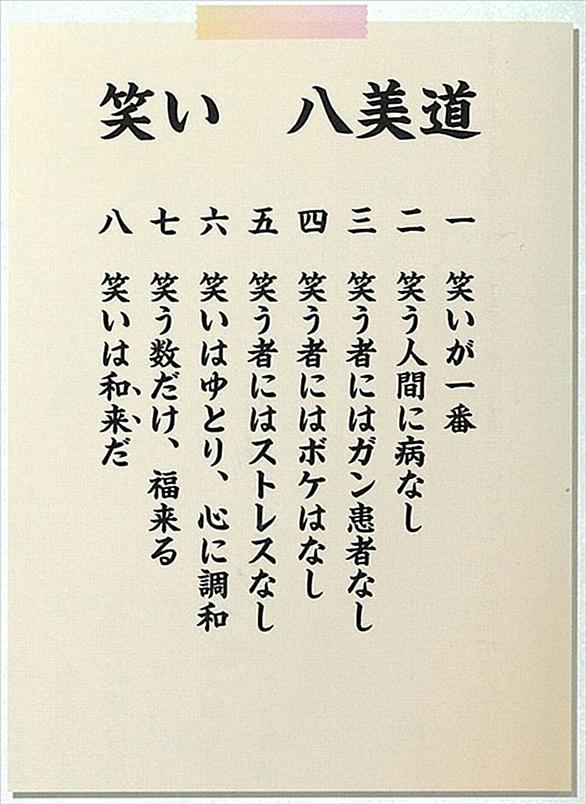 笑い　八美道
一　笑いが一番
二　笑う人間に病なし
三　笑う者にはガン患者なし
四　笑う者にはボケはなし
五　笑う者にはストレスなし
六　笑いはゆとり、心に調和
七　笑う数だけ、福来る
八　笑いは和来だ